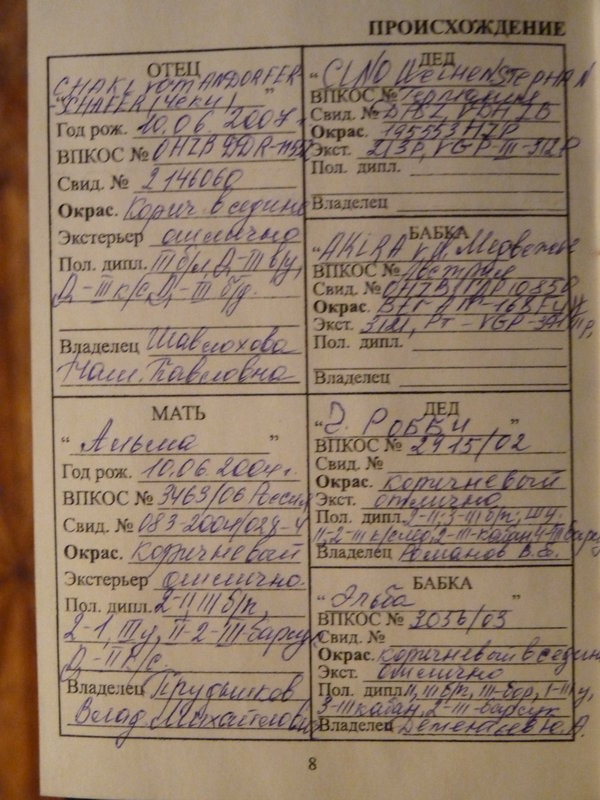 ПРОИСХОЖДЕНИЕ
ОТЕЦ
CHAKI VOM ANDORFER-
"SCHÄFER (Чеки)"
Год рож. 10.06.2007г.
ВПКОС № ÖHZB DDR
Свид. № 2146060
Окрас. Коричн. в седине
Экстерьер отлично
Пол. дипл. III б/л, Д-III б/у,
Д-III к/с, Д-III б/д.
Владелец Шавлохова
Нат. Павловна
ДЕД
"CLIND WEIHENSTEPHAN
ВПКОС № Германия
Свид. №
Окрас. 195553 HZP
Экст. 213P, VGP-III-312P
Пол. дипл.
Владелец
БАБКА
"AKIRA v.d. Медвежье
ВПКОС № Австрия
Свид. № ÖHZB
Окрас.
Экст. VGP
Пол. дипл.
Владелец
МАТЬ
"Альма"
Год рож. 10.06.2004г.
ВПКОС № 3463/06 Россия
Свид. № 083-2004/028-4
Окрас. Коричневый
Экстерьер отлично
Пол. дипл. 2-II, III б/п,
2-I, III у, II-2-III барсук
Д-II к/с
Владелец Прудников
Влад. Михайлович
ДЕД
"Э. РОББИ"
ВПКОС № 2915/02
Свид. №
Окрас. коричневый
Экст. отлично
Пол. дипл. 2-II; 3-III б/п; III у.
II-2-III к/след, 2-III-кабан, 4-III барсук
Владелец Романов В.В.
БАБКА
"Эльба"
ВПКОС № 3056/03
Свид. №
Окрас. коричневый в седине
Экст. отлично
Пол. дипл. II, III б/п, III-бар, 1-III у,
3-III кабан, 2-III-барсук
Владелец Ю.А.
8